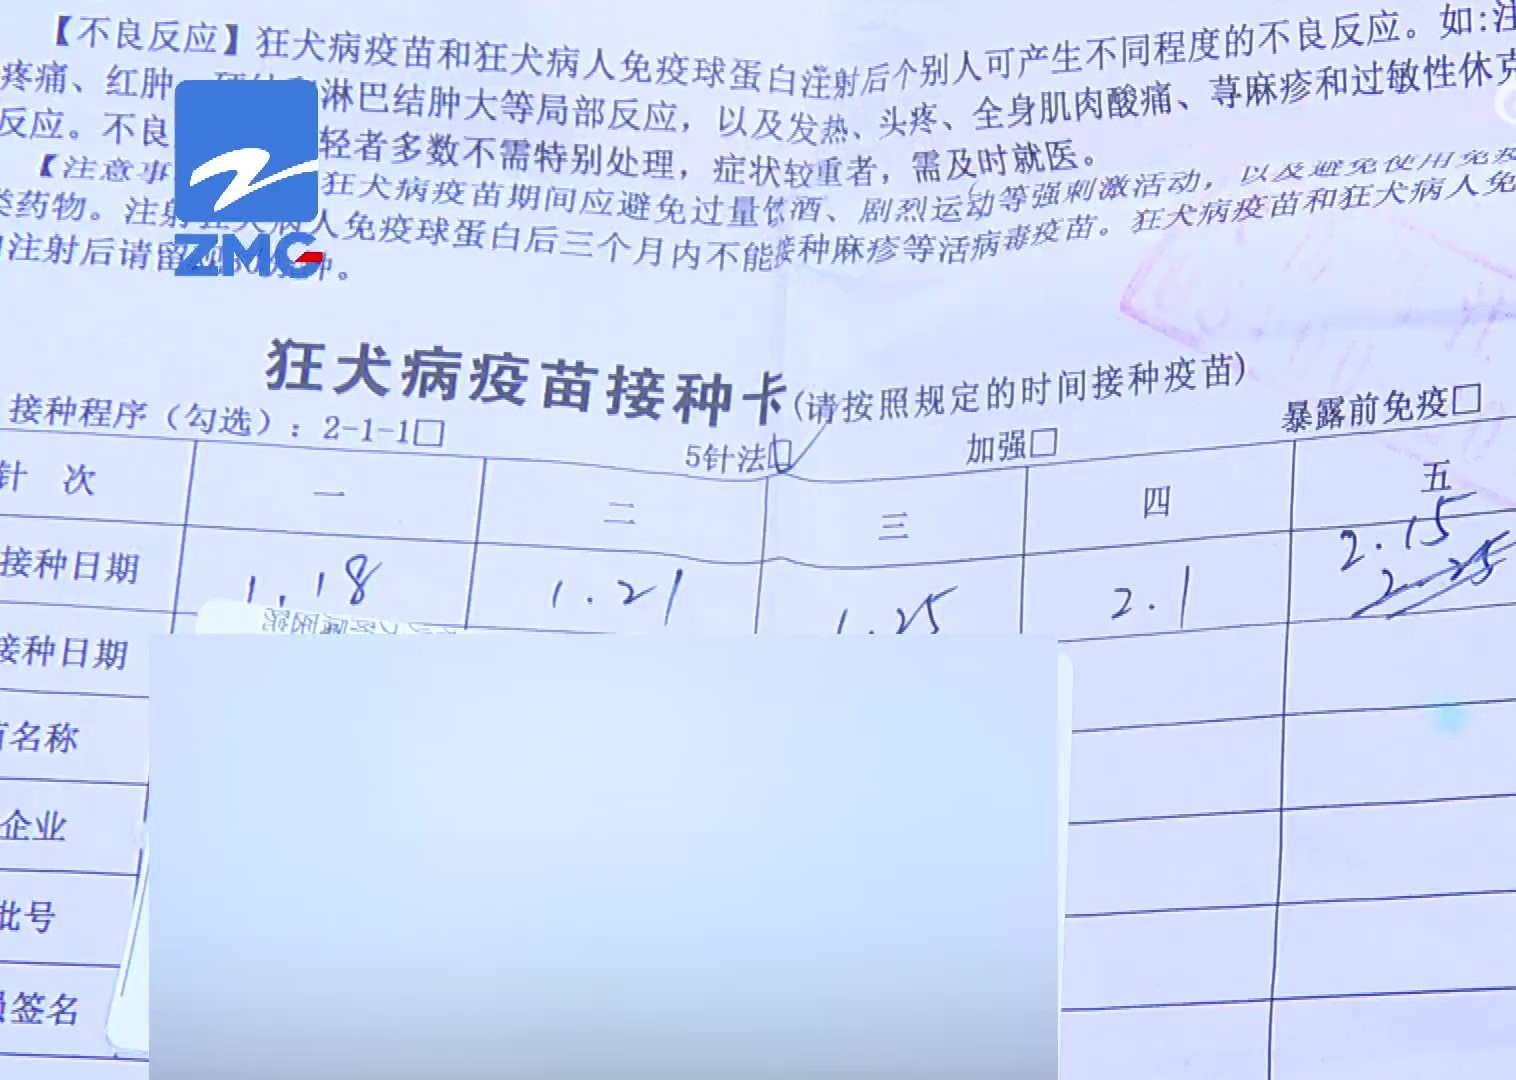 【不良反应】狂犬病疫苗和狂犬病人免疫球蛋白注射后个别人可产生不同程度的不良反应。如:注
疼痛、红肿、 淋巴结肿大等局部反应，以及发热、头疼、全身肌肉酸痛、荨麻疹和过敏性休克
反应。不良 轻者多数不需特别处理，症状较重者，需及时就医。
【注意事 狂犬病疫苗期间应避免过量饮酒、剧烈运动等强刺激活动，以及避免使用免疫
类药物。注射狂犬病人免疫球蛋白后三个月内不能接种麻疹等活病毒疫苗。狂犬病疫苗和狂犬病人免
注射后请留 钟。
ZMG
狂犬病疫苗接种卡(请按照规定的时间接种疫苗)
接种程序（勾选）：2-1-1□ 5针法□ 加强□ 暴露前免疫□
针 次 一 二 三 四 五
接种日期 1.18 1.21 1.25 2.1 2.15
2.25
接种日期
名称
企业
批号
签名